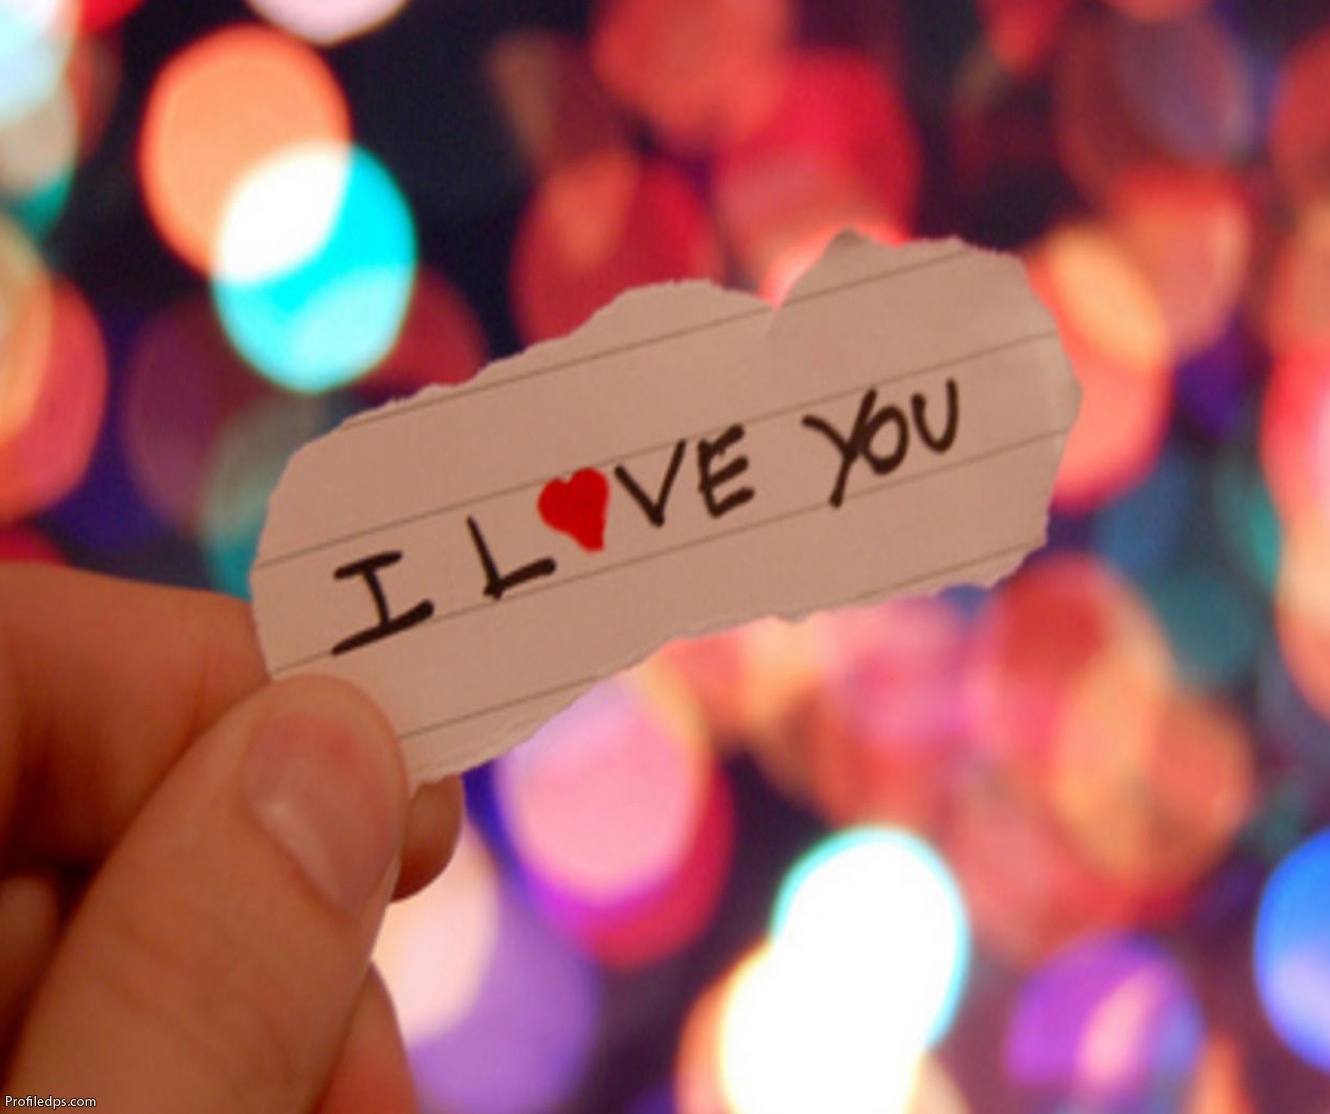 I L❤VE YOU
Profiledps.com